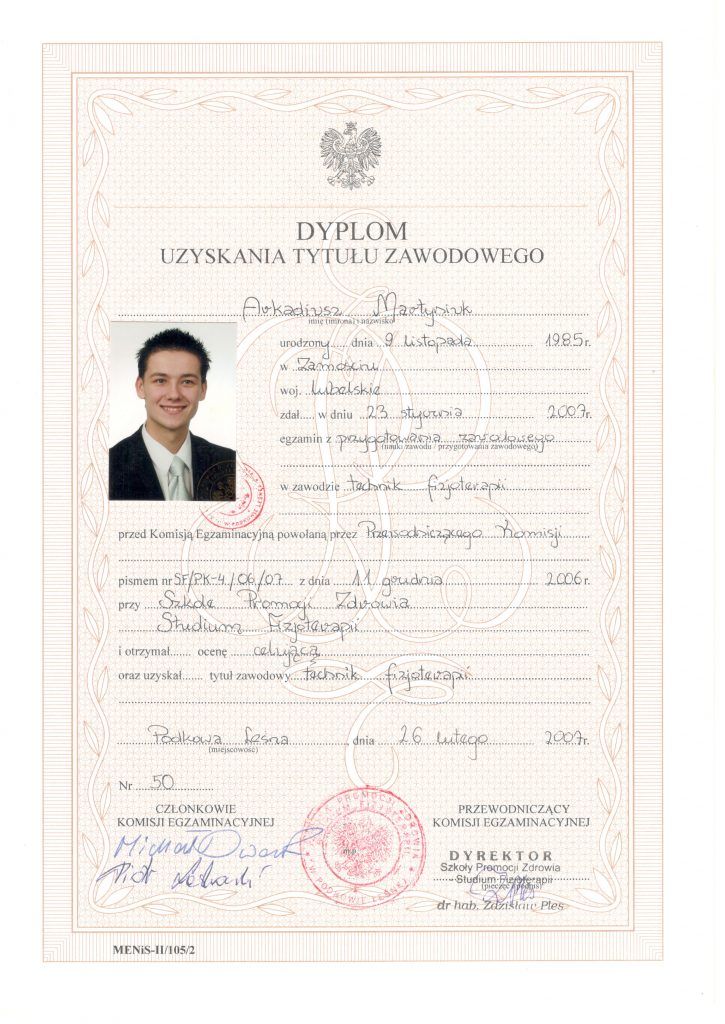 DYPLOM
UZYSKANIA TYTUŁU ZAWODOWEGO
Arkadiusz Martyniuk
imię (imiona) i nazwisko
urodzony dnia 9 listopada 1985 r.
w Zamościu
woj. lubelskie
zdał w dniu 23 stycznia 2007 r.
egzamin z przygotowania zawodowego
(nauki zawodu / przygotowania zawodowego)
w zawodzie technik fizjoterapii
przed Komisją Egzaminacyjną powołaną przez Przewodniczącego Komisji
pismem nr SF/PK-4/06/07 z dnia 11 grudnia 2006 r.
przy Szkole Promocji Zdrowia
Studium Fizjoterapii
i otrzymał ocenę celującą
oraz uzyskał tytuł zawodowy technik fizjoterapii
Podkowa Leśna, dnia 26 lutego 2007 r.
(miejscowość)
Nr 50
CZŁONKOWIE
KOMISJI EGZAMINACYJNEJ
PRZEWODNICZĄCY
KOMISJI EGZAMINACYJNEJ
Michał
Piotr
DYREKTOR
Szkoły Promocji Zdrowia
Studium Fizjoterapii
(pieczęć i podpis)
dr hab. Zdzisław Ples
MENiS-II/105/2